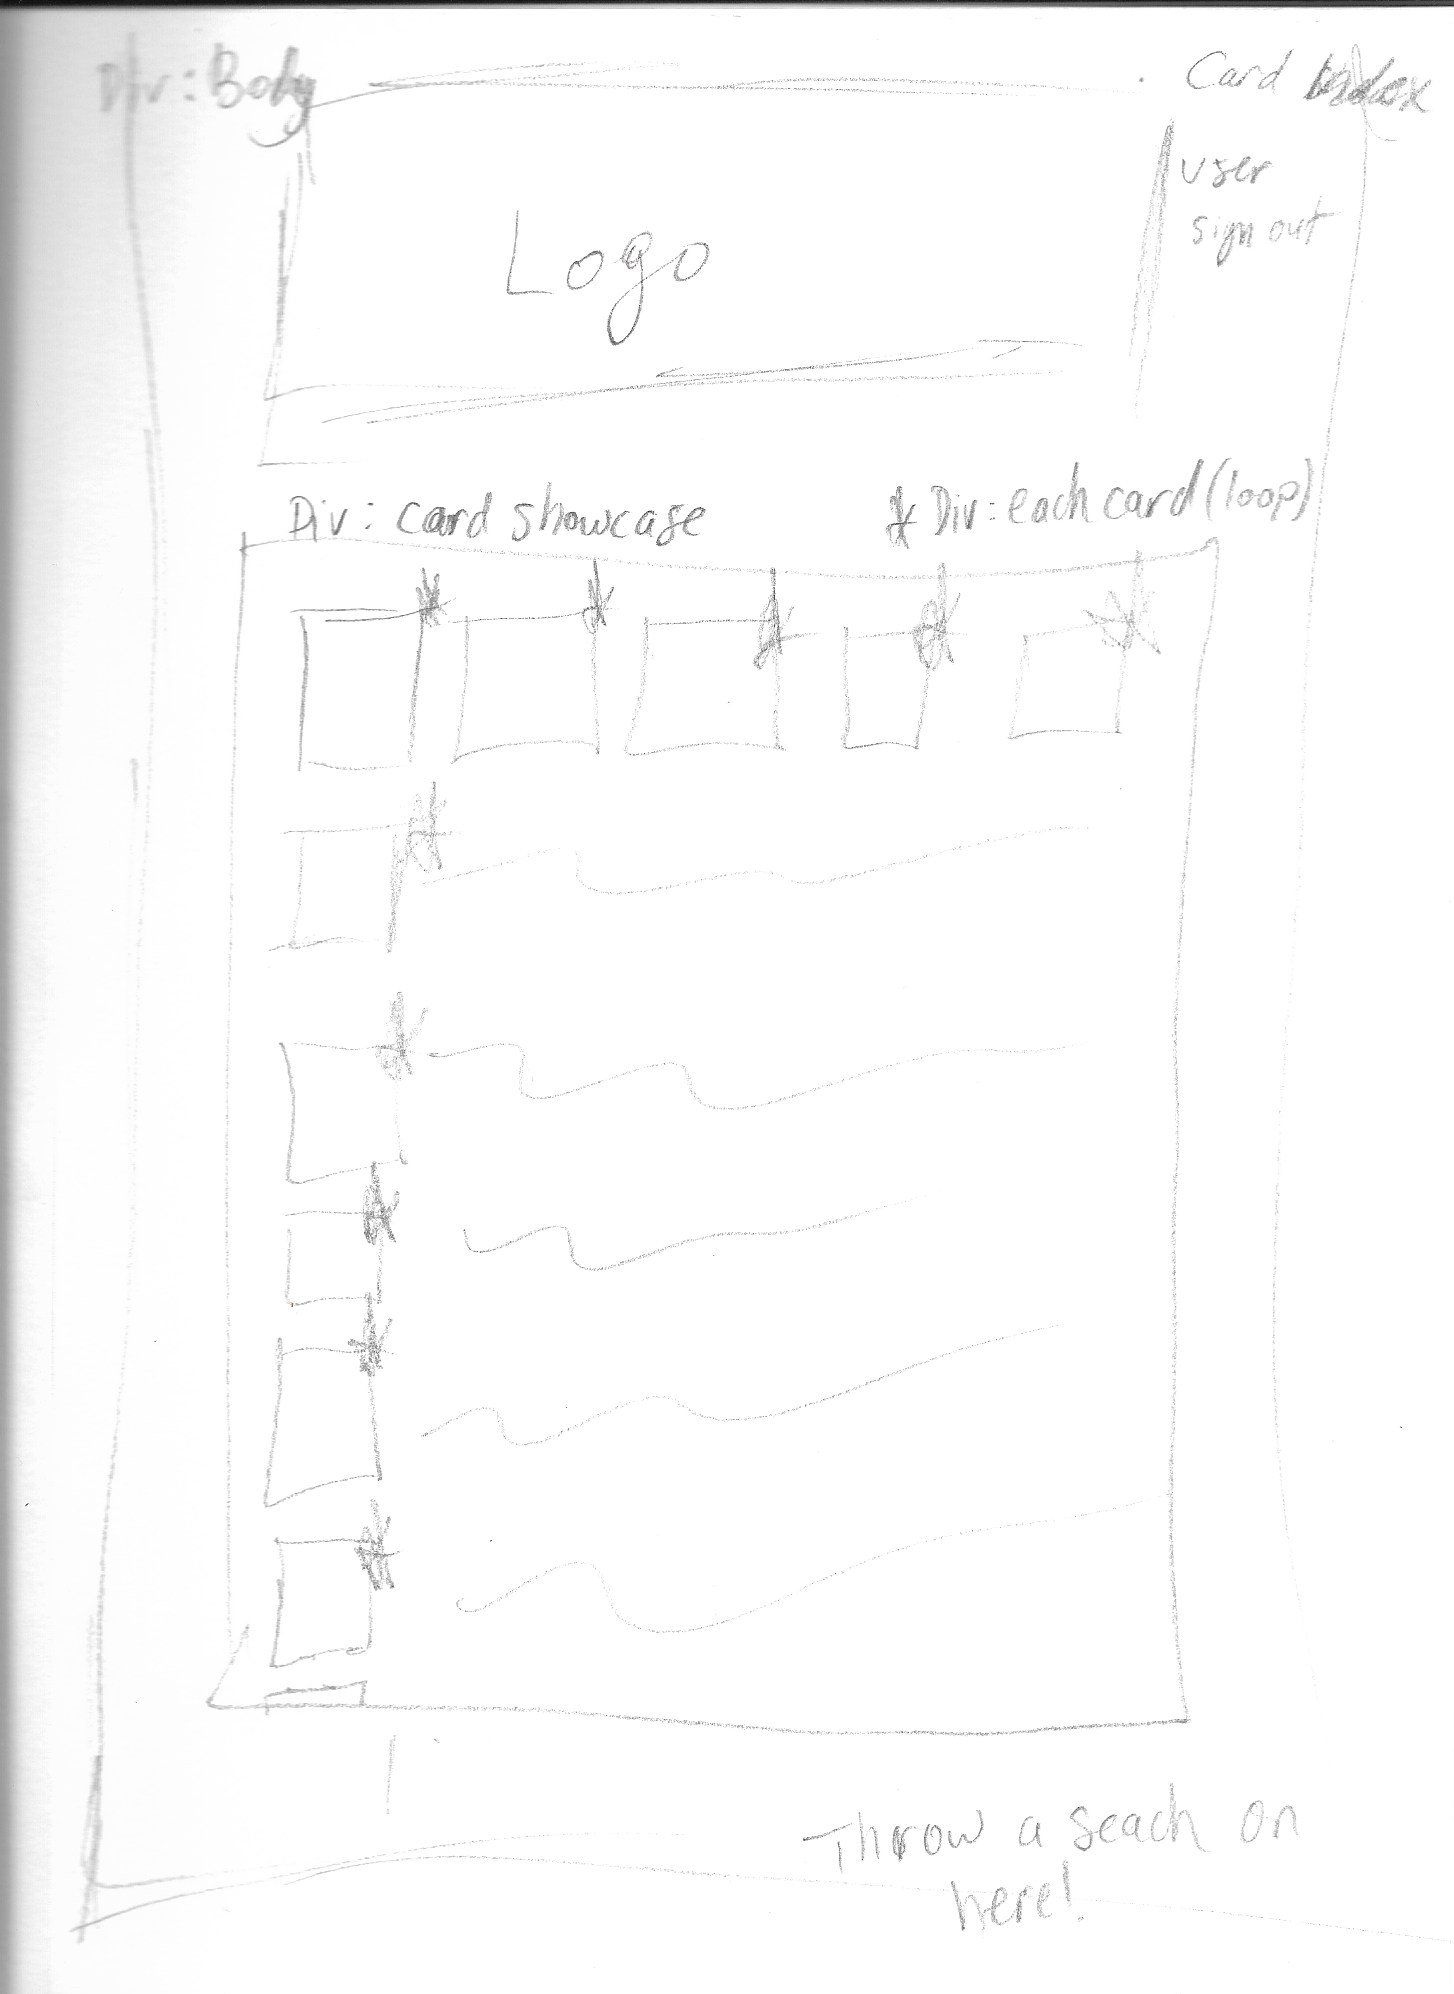 Div: Body
Card
user
sign out
Logo
Div: card showcase
* Div: each card (loop)
Throw a seach on
here!